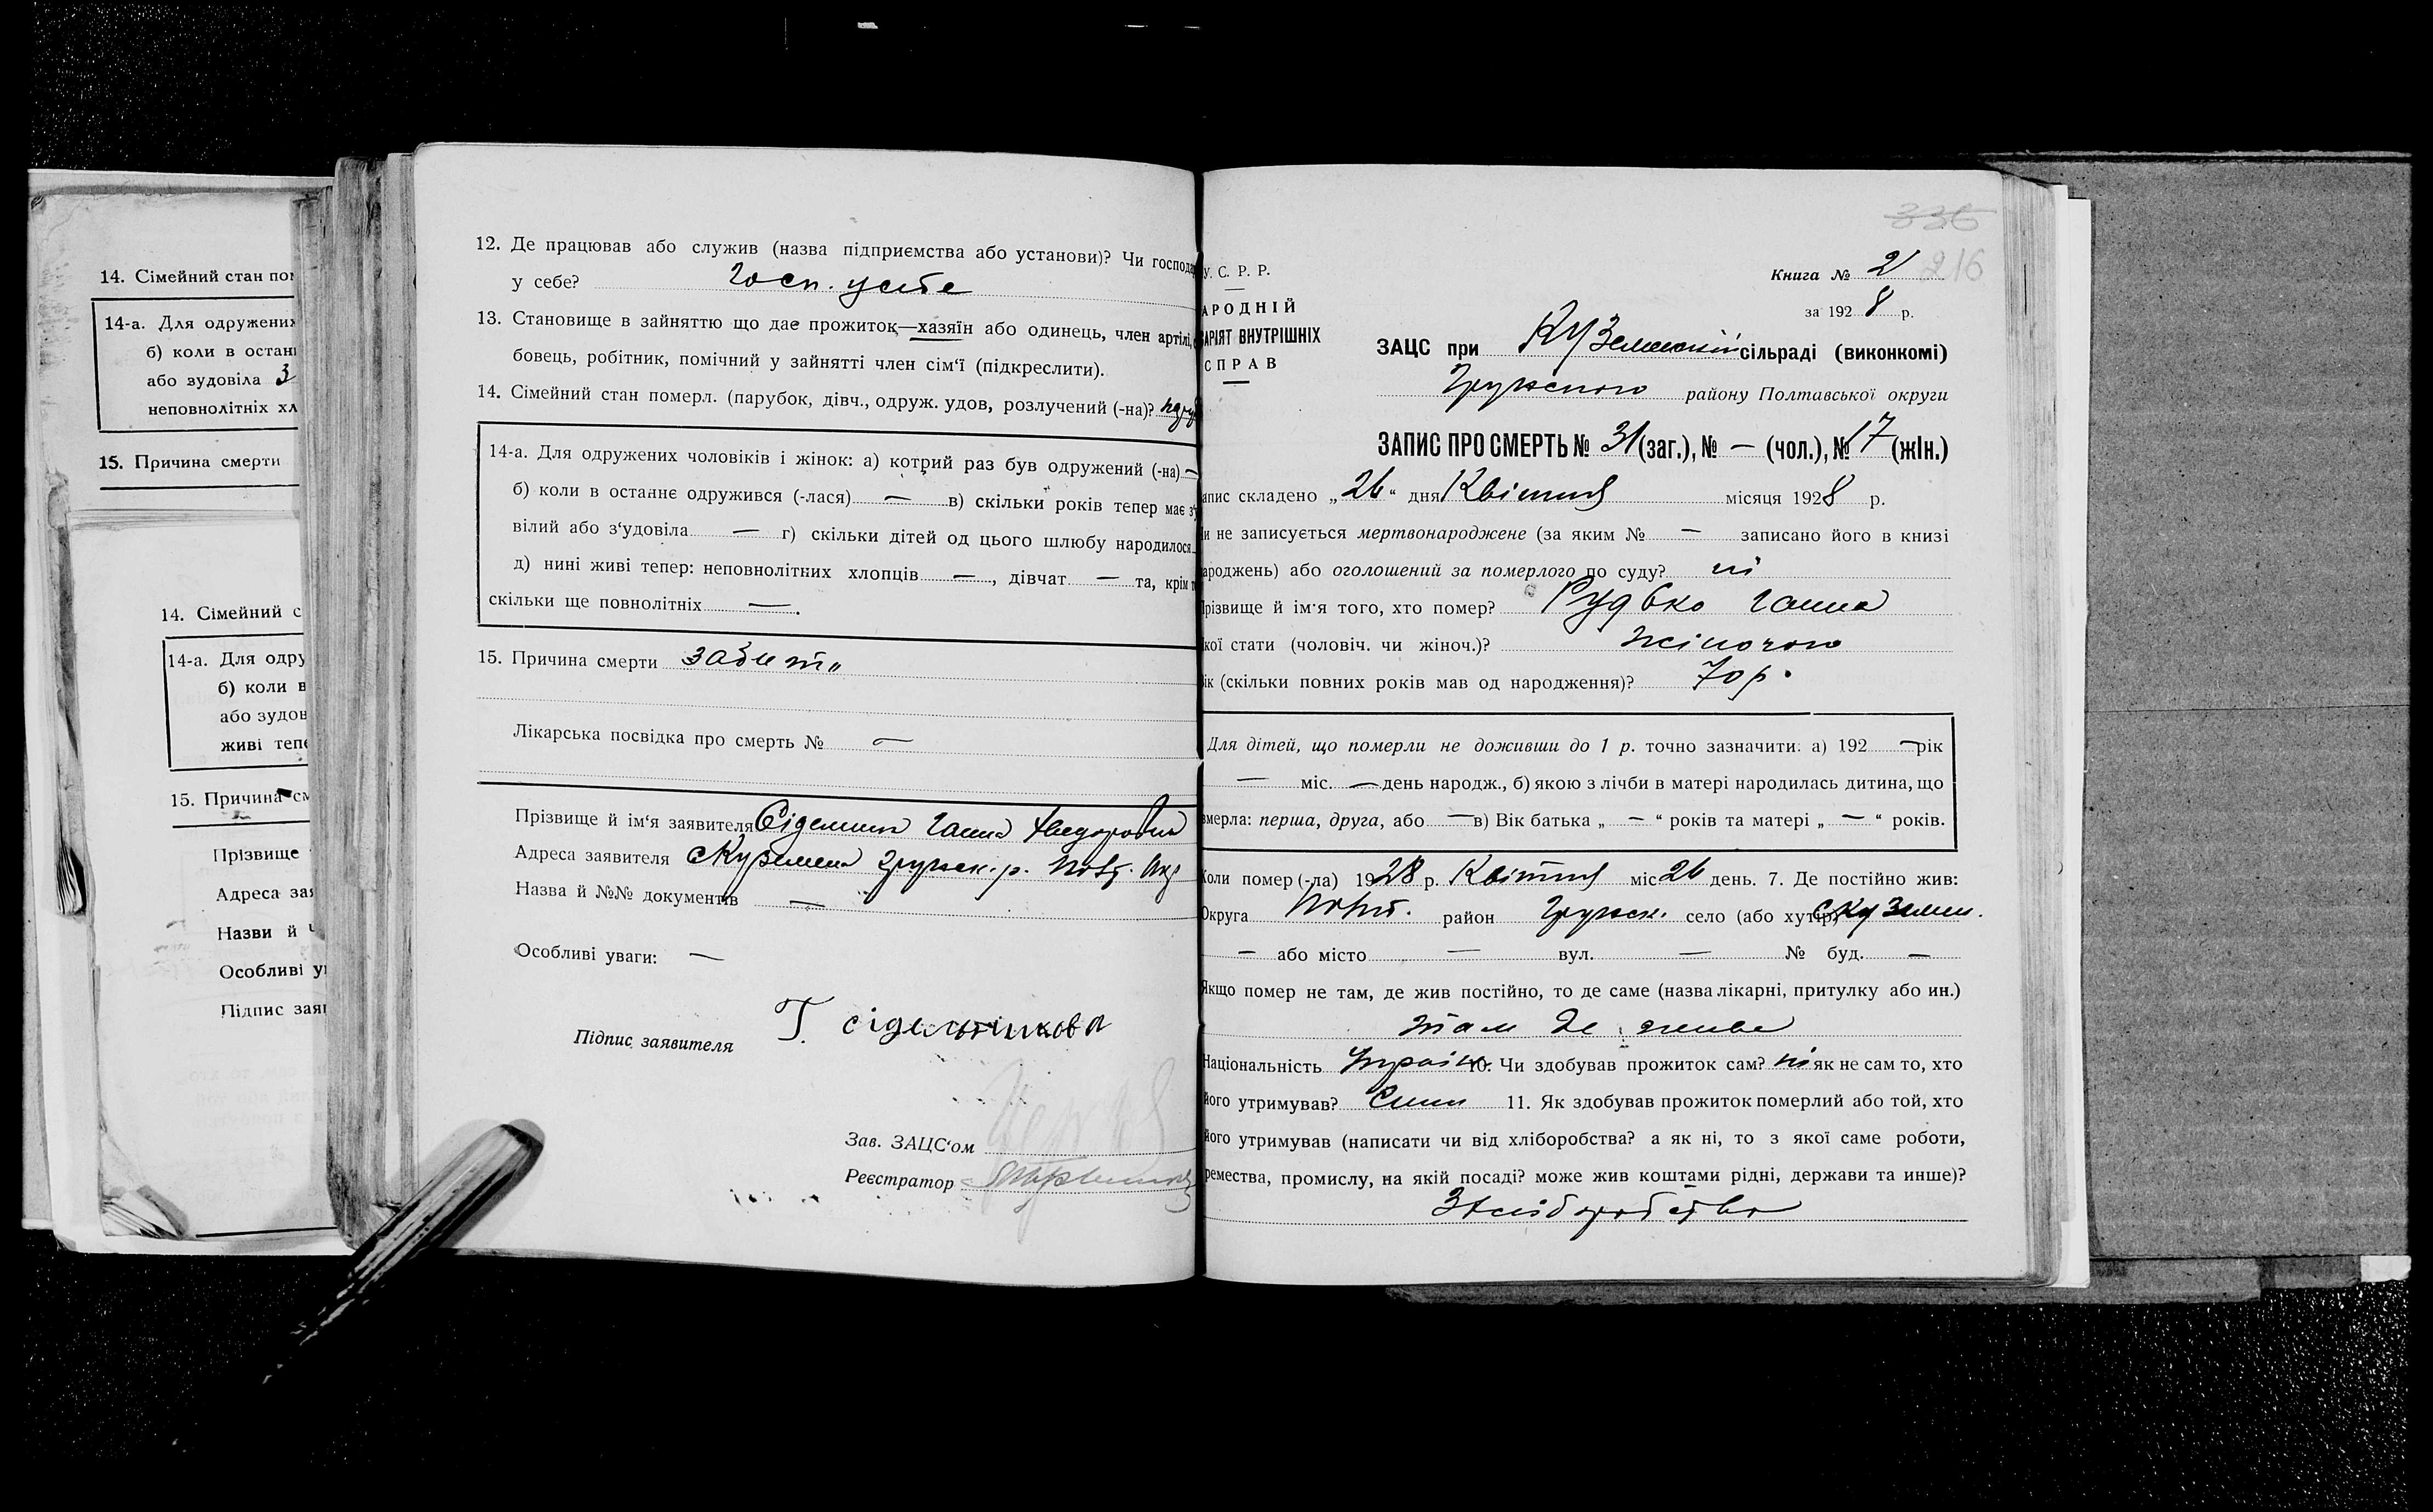 14. Сімейний стан пом
14-а. Для одружених
б) коли в остан
або зудовіла З
неповнолітніх хл
15. Причина смерти
14. Сімейний с
14-а. Для одру
б) коли в
або зудов
живі тепе
15. Причина см
Прізвище
Адреса зая
Назви й
Особливі ув
Підпис заяв
12. Де працював або служив (назва підприємства або установи)? Чи господар
у себе? Госп. у себе
13. Становище в зайняттю що дає прожиток—хазяїн або одинець, член артілі,
бовець, робітник, помічний у зайнятті член сім'ї (підкреслити).
14. Сімейний стан померл. (парубок, дівч., одруж. удов, розлучений (-на)?
14-а. Для одружених чоловіків і жінок: а) котрий раз був одружений (-на) —
б) коли в останнє одружився (-лася) — в) скільки років тепер має з'у
вілий або з'удовіла — г) скільки дітей од цього шлюбу народилося
д) нині живі тепер: неповнолітних хлопців —, дівчат — та, крім т
скільки ще повнолітніх —.
15. Причина смерти забита
Лікарська посвідка про смерть № —
Прізвище й ім'я заявителя Ганна
Адреса заявителя
Назва й №№ документів —
Особливі уваги: —
Підпис заявителя Г. сідельникова
Зав. ЗАЦС'ом
Реєстратор
336
216
У. С. Р. Р.
Книга № 2
АРОДНІЙ
за 1928 р.
АРІЯТ ВНУТРІШНІХ
СПРАВ
ЗАЦС при Куземенській сільраді (виконкомі)
Грунського району Полтавської округи
ЗАПИС ПРО СМЕРТЬ № 31 (заг.), № — (чол.), № 17 (жін.)
апис складено „26“ дня Квітня місяця 1928 р.
и не записується мертвонароджене (за яким № — записано його в книзі
ароджень) або оголошений за померлого по суду? ні
різвище й ім'я того, хто помер? Рудько Ганна
кої стати (чоловіч. чи жіноч.)? жіночого
ік (скільки повних років мав од народження)? 70 р.
Для дітей, що померли не доживши до 1 р. точно зазначити: а) 192 — рік
— міс. — день народж., б) якою з лічби в матері народилась дитина, що
вмерла: перша, друга, або — в) Вік батька „ — “ років та матері „ — “ років.
Коли помер (-ла) 1928 р. Квітня міс 26 день. 7. Де постійно жив:
Округа Полт. район Грунськ. село (або хутір) с Куземен.
— або місто — вул. — № буд. —
Якщо помер не там, де жив постійно, то де саме (назва лікарні, притулку або ин.)
там де жива
Національність Україн. 10. Чи здобував прожиток сам? ні як не сам то, хто
його утримував? Син 11. Як здобував прожиток померлий або той, хто
його утримував (написати чи від хліборобства? а як ні, то з якої саме роботи,
ремества, промислу, на якій посаді? може жив коштами рідні, держави та инше)?
З хліборобства